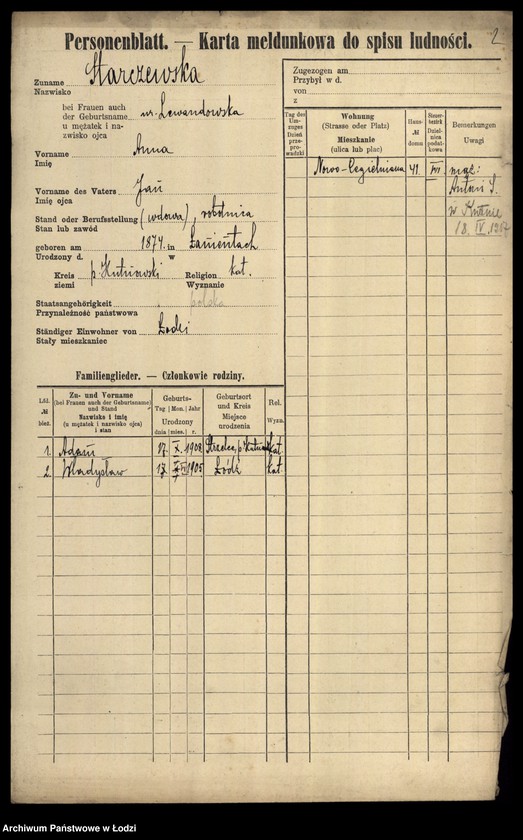 Personenblatt. — Karta meldunkowa do spisu ludności.
2
Zuname Starczewska
Nazwisko
bei Frauen auch
der Geburtsname ur. Lewandowska
u mężatek i na-
zwisko ojca
Vorname Anna
Imię
Vorname des Vaters Jan
Imię ojca
Stand oder Berufsstellung (wdowa), robotnica
Stan lub zawód
geboren am 1874. in Łanientach
Urodzony d. w
Kreis p. Kutnowski Religion kat.
ziemi Wyznanie
Staatsangehörigkeit polska
Przynależność państwowa
Ständiger Einwohner von Łodzi
Stały mieszkaniec
Zugezogen am
Przybył w d.
von
z
Tag des Um-zuges
Dzień prze-pro-wadzki
Wohnung
(Strasse oder Platz)
Mieszkanie
(ulica lub plac)
Haus-
№
domu
Steuer-bezirk
Dziel-nica podat-kowa
Bemerkungen
Uwagi
Nowo-Cegielniana 41. VII mąż:
Antoni S.
w Kutnie
18. IV. 1907
Familienglieder. — Członkowie rodziny.
Lfd.
№
bież.
Zu- und Vorname
(bei Frauen auch der Geburtsname)
und Stand
Nazwisko i imię
(u mężatek i nazwisko ojca)
i stan
Geburts-
Tag Mon. Jahr
Urodzony
dnia mies. r.
Geburtsort
und Kreis
Miejsce
urodzenia
Rel.
Wyzn.
1. Adam 17. X. 1908 Strzelce, p. Kutnow. kat.
2. Władysław 17. 1905 Łódź kat.
Archiwum Państwowe w Łodzi